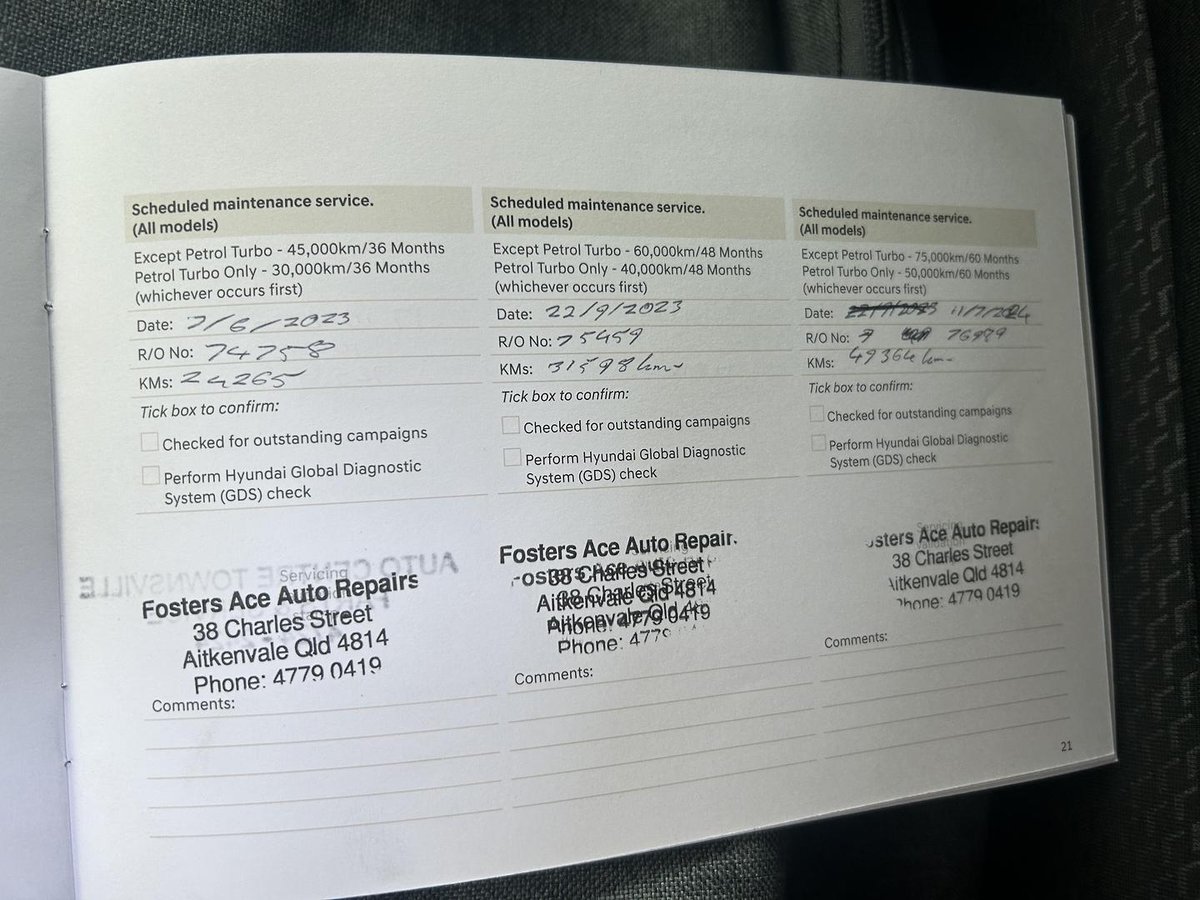 Scheduled maintenance service.
(All models)
Except Petrol Turbo - 45,000km/36 Months
Petrol Turbo Only - 30,000km/36 Months
(whichever occurs first)
Date: 7/6/2023
R/O No: 74758
KMs: 24265
Tick box to confirm:
Checked for outstanding campaigns
Perform Hyundai Global Diagnostic
System (GDS) check
AUTO CENTRE TOWNSVILLE
Servicing
Fosters Ace Auto Repairs
38 Charles Street
Aitkenvale Qld 4814
Phone: 4779 0419
Comments:
Scheduled maintenance service.
(All models)
Except Petrol Turbo - 60,000km/48 Months
Petrol Turbo Only - 40,000km/48 Months
(whichever occurs first)
Date: 22/9/2023
R/O No: 75459
KMs: 31598km
Tick box to confirm:
Checked for outstanding campaigns
Perform Hyundai Global Diagnostic
System (GDS) check
Fosters Ace Auto Repair
38 Charles Street
Aitkenvale Qld 4814
Phone: 4779 0419
Phone: 477
Comments:
Scheduled maintenance service.
(All models)
Except Petrol Turbo - 75,000km/60 Months
Petrol Turbo Only - 50,000km/60 Months
(whichever occurs first)
Date: 22/9/2023 11/7/2024
R/O No: 7 76989
KMs: 49364km
Tick box to confirm:
Checked for outstanding campaigns
Perform Hyundai Global Diagnostic
System (GDS) check
Servicing
sters Ace Auto Repairs
38 Charles Street
Aitkenvale Qld 4814
Phone: 4779 0419
Comments:
21